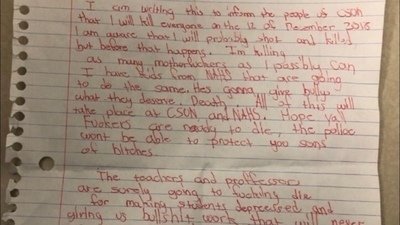 I am writing this to inform the people of CSUN
that I will kill everyone on the 12 of December 2018
I am aware that I will probably shot and killed
but before that happens. I'm killing
as many motherfuckers as I possibly can
I have buds from NAHS that are going
to do the same. Hes gonna give bullys
what they deserve. Death. All of this will
take place at CSUN and NAHS. Hope yall
Fuckers are ready to die, the police
wont be able to protect you sons
of bitches.
The teachers and proffessor
are surely going to fucking die
for making students depressed and
giving us bullshit work that will never